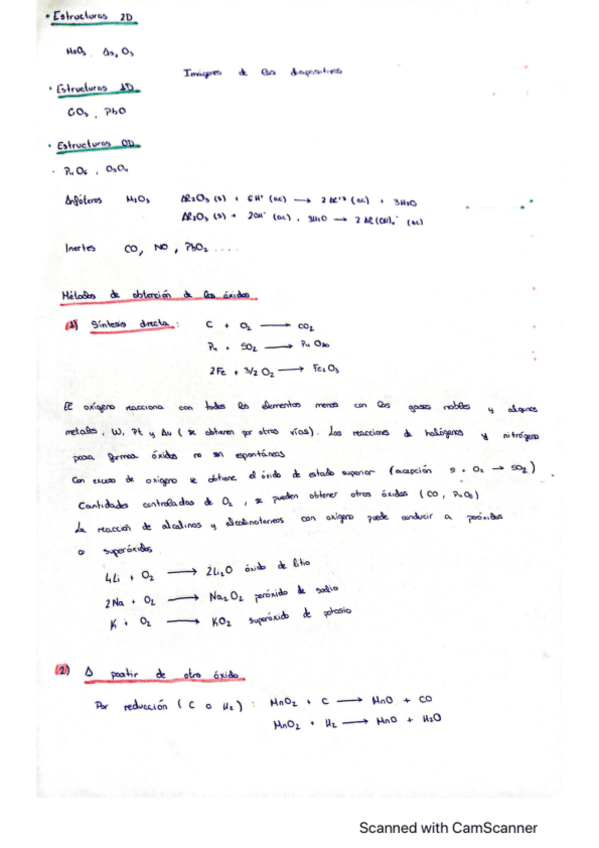 • Estructuras 2D
MoO3, As2O3
Imágenes de las diapositivas
• Estructuras 1D
CO3, PbO
• Estructuras 0D
· P4O6, OsO4
Anfóteros Al2O3 Al2O3 (s) + 6H+ (ac) → 2Al+3 (ac) + 3H2O
Al2O3 (s) + 2OH- (ac) + 3H2O → 2Al(OH)4- (ac)
Inertes CO, NO, PbO2 ....
Métodos de obtención de los óxidos
(1) Síntesis directa: C + O2 → CO2
P4 + 5O2 → P4O10
2Fe + 3/2 O2 → Fe2O3
El oxígeno reacciona con todos los elementos menos con los gases nobles y algunos
metales, W, Pt y Au (se obtienen por otras vías). Las reacciones de halógenos y nitrógeno
para formar óxidos no son espontáneas
Con exceso de oxígeno se obtiene el óxido de estado superior (acepción S + O2 → SO2)
Cantidades controladas de O2, se pueden obtener otros óxidos (CO, P4O6)
La reacción de alcalinos y alcalinoterreos con oxígeno puede conducir a peróxidos
o superóxidos.
4Li + O2 → 2Li2O óxido de litio
2Na + O2 → Na2O2 peróxido de sodio
K + O2 → KO2 superóxido de potasio
(2) A partir de otro óxido
Por reducción (C o H2): MnO2 + C → MnO + CO
MnO2 + H2 → MnO + H2O
Scanned with CamScanner